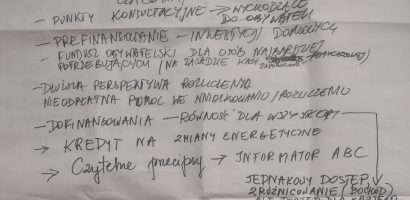 - PUNKTY KONSULTACYJNE → WYCHODZĄCE
DO OBYWATELI
- PREFINANSOWANIE - INWESTYCJI DOMOWYCH
- FUNDUSZ OBYWATELSKI DLA OSÓB NAJBARDZIEJ
POTRZEBUJĄCYCH (NA ZASADZIE KASY
- DŁUŻSZA PERSPEKTYWA ROZLICZENIA
NIEODPŁATNA POMOC WE WNIOSKOWANIU/ROZLICZENIU
- DOFINANSOWANIA - RÓWNOŚĆ DLA WSZYSTKICH
→ KREDYT NA ZMIANY ENERGETYCZNE
→ Czytelne przepisy → INFORMATOR ABC
JEDNAKOWY DOSTĘP
ZRÓŻNICOWANIE (DOCHÓD)